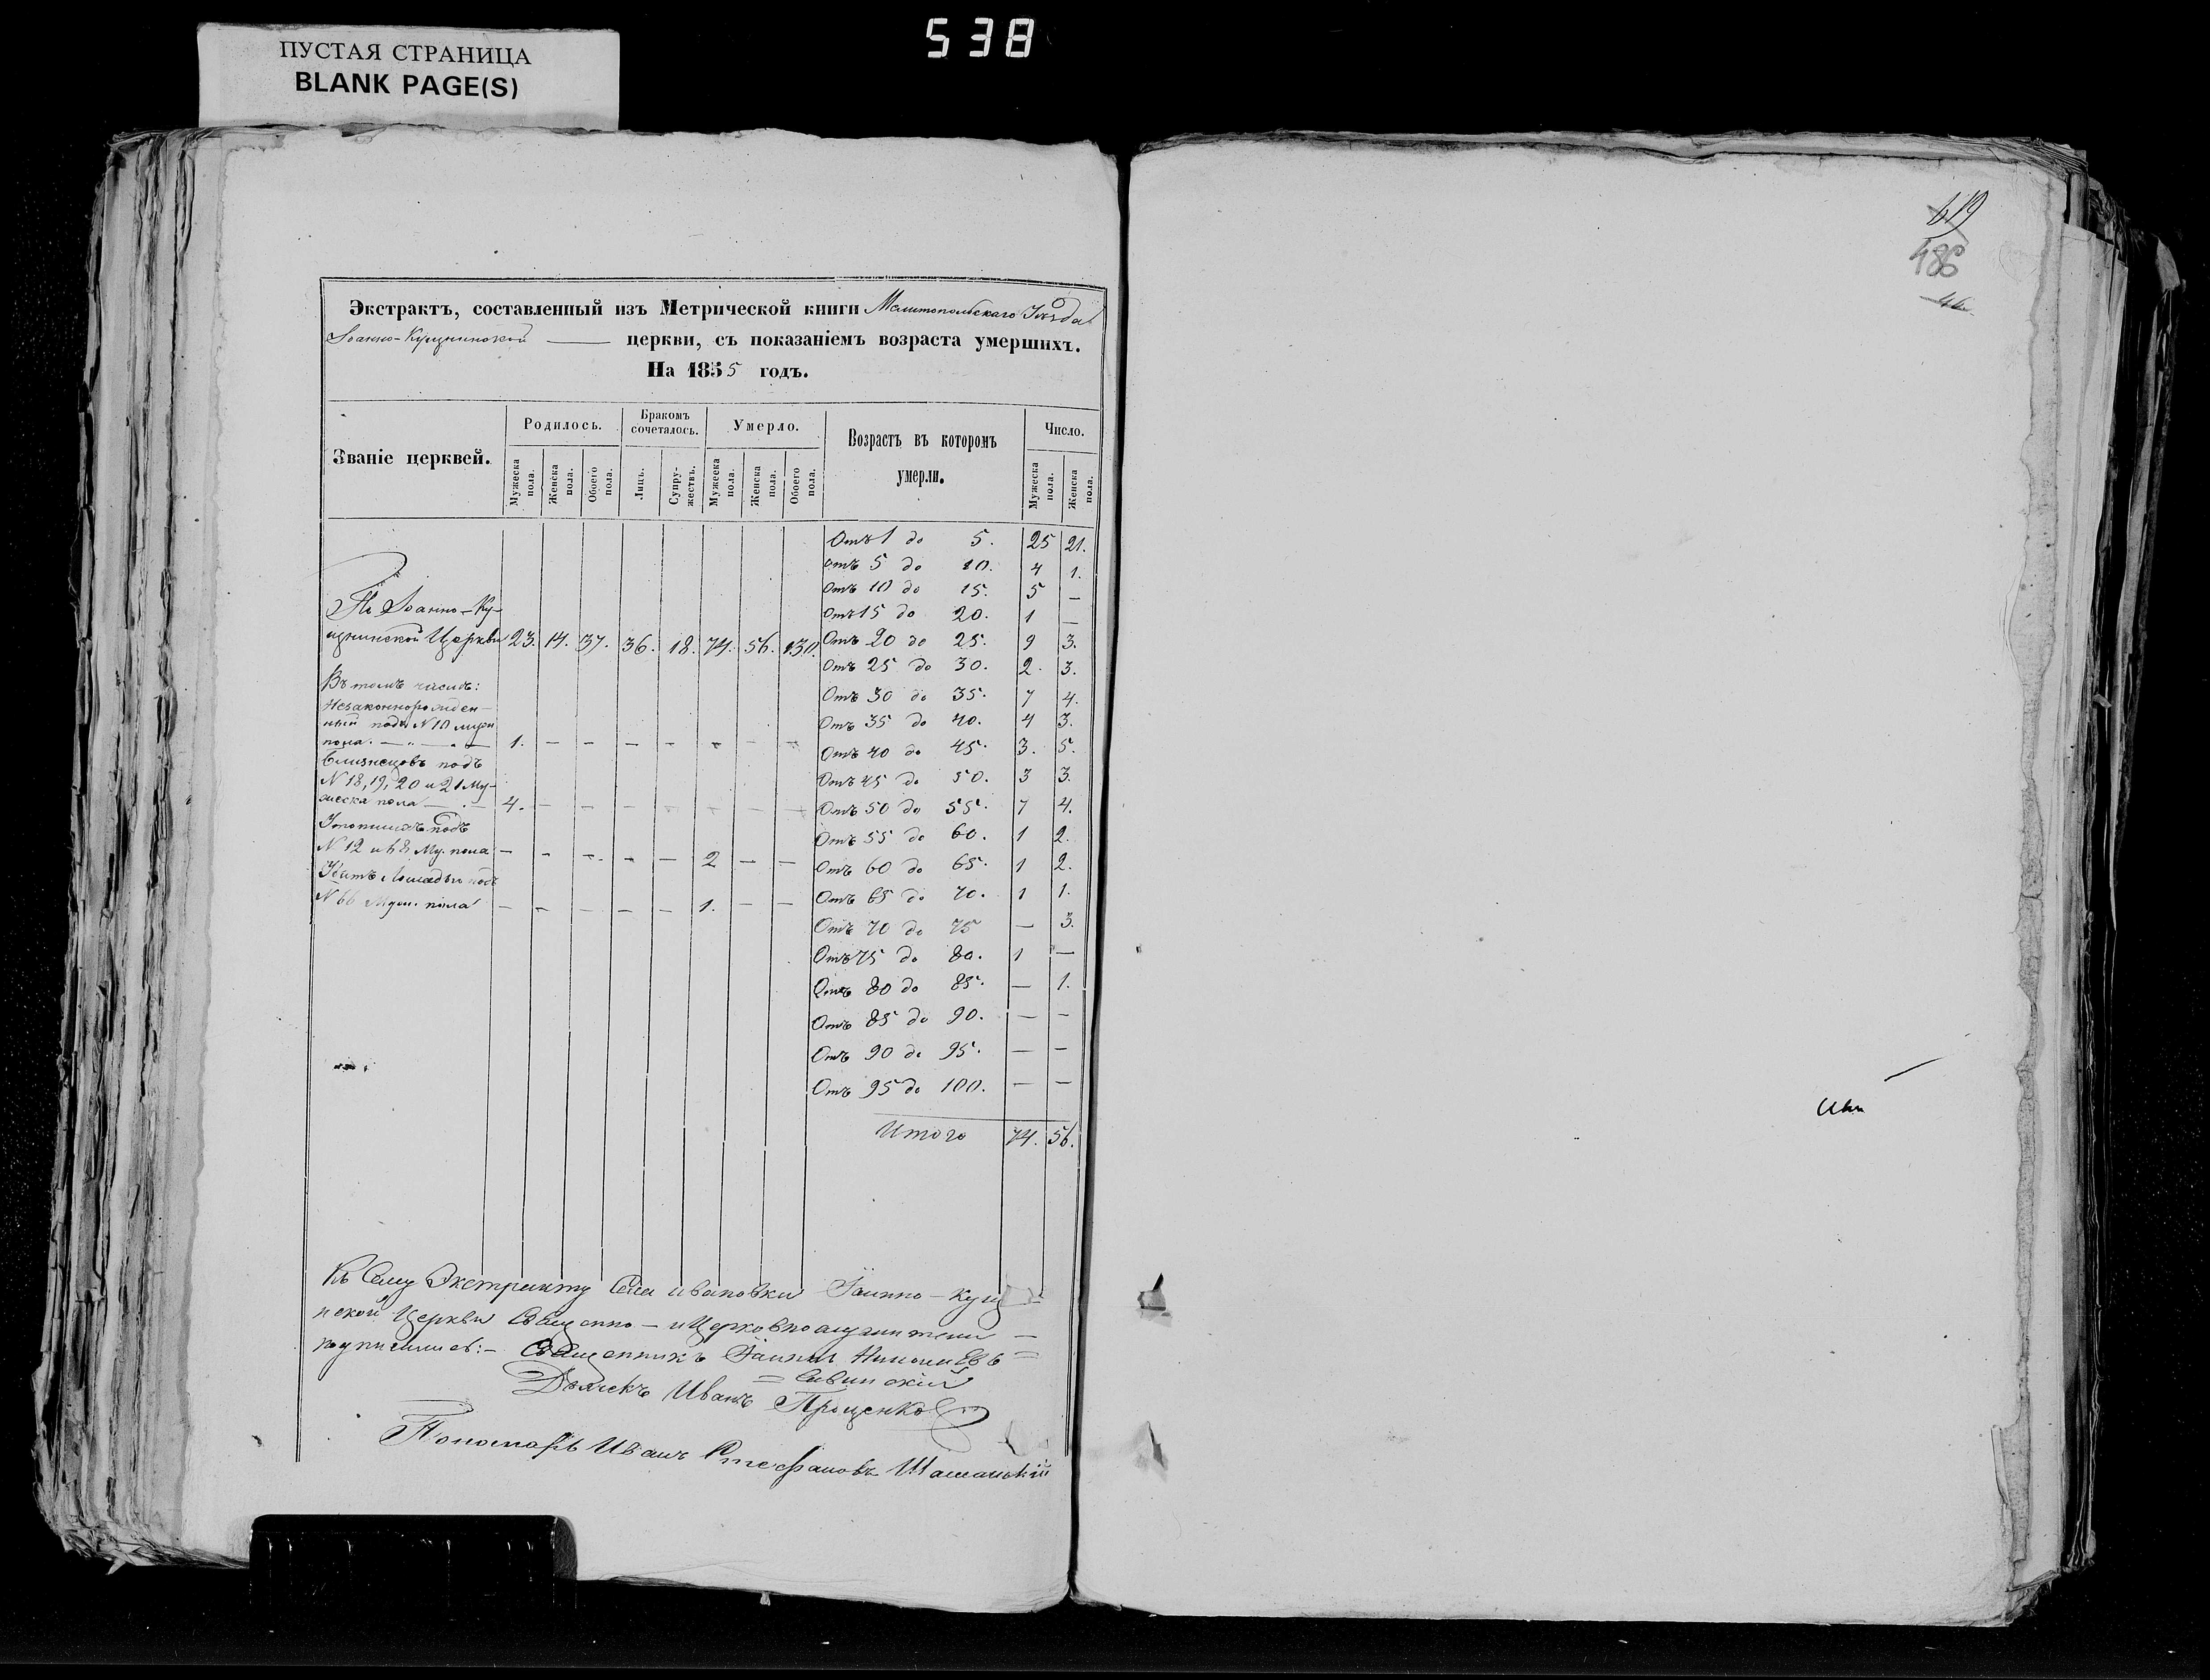 538
ПУСТАЯ СТРАНИЦА
BLANK PAGE(S)
619
486
46
Экстрактъ, составленный изъ Метрической книги Мелитопольскаго Уѣзда
Іоанно-Кущнинской церкви, съ показаніемъ возраста умершихъ.
На 1855 годъ.
Званіе церквей.
Родилось.
Бракомъ сочеталось.
Умерло.
Возрастъ въ которомъ умерли.
Число.
Мужеска пола.
Женска пола.
Обоего пола.
Лицъ.
Супружествъ.
Мужеска пола.
Женска пола.
Обоего пола.
Мужеска пола.
Женска пола.
Отъ 1 до 5. 25 21.
отъ 5 до 10. 4 1.
отъ 10 до 15. 5 —
Отъ 15 до 20. 1 —
Отъ 20 до 25. 9 3.
Отъ 25 до 30. 2. 3.
Отъ 30 до 35. 7 4.
Отъ 35 до 40. 4 3.
Отъ 40 до 45. 3. 5.
Отъ 45 до 50. 3 3.
Отъ 50 до 55. 7 4.
Отъ 55 до 60. 1 2.
Отъ 60 до 65. 1 2.
Отъ 65 до 70. 1 1.
Отъ 70 до 75 — 3.
Отъ 75 до 80. 1 —
Отъ 80 до 85. — 1.
Отъ 85 до 90. — —
Отъ 90 до 95. — —
Отъ 95 до 100. — —
Итого 74. 56.
Іоанно-Ку-
щнинской Церкви 23. 14. 37. 36. 18. 74. 56. 130.
Въ томъ числѣ:
Незаконнорожден-
ный подъ N 10 
пола. — 1. — — — — — — —
близнецовъ подъ
N 18, 19, 20 и 21 Му-
жеска пола — 4. — — — — — — —
подъ
N 12 и 68 Му. пола — — — — — 2 — —
Убитъ Лошадьми подъ
N 66 Муж. пола — — — — — 1. — —
Къ Сему Экстракту Села Ивановки Іоанно-
нской Церкви Священно- и Церковнослужители
подписались:- Священникъ Іоаннъ Николаевъ
= Савинскій
Дьячекъ Иванъ Проценко
Пономарь Иванъ Стефановъ Шаманскій